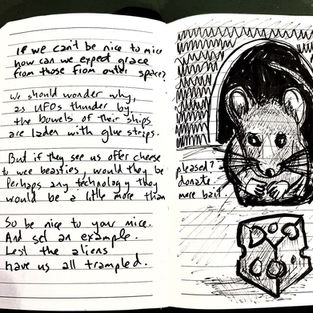 If we can't be nice to mice
how can we expect grace
from those from outer space?
We should wonder why,
as UFOs thunder by
the bowels of their ships
are laden with glue strips.
But if they see us offer cheese
to wee beasties, would they be pleased?
Perhaps any technology they donate
would be a little more than mere bait
So be nice to your mice.
And set an example.
Lest the aliens
have us all trampled.